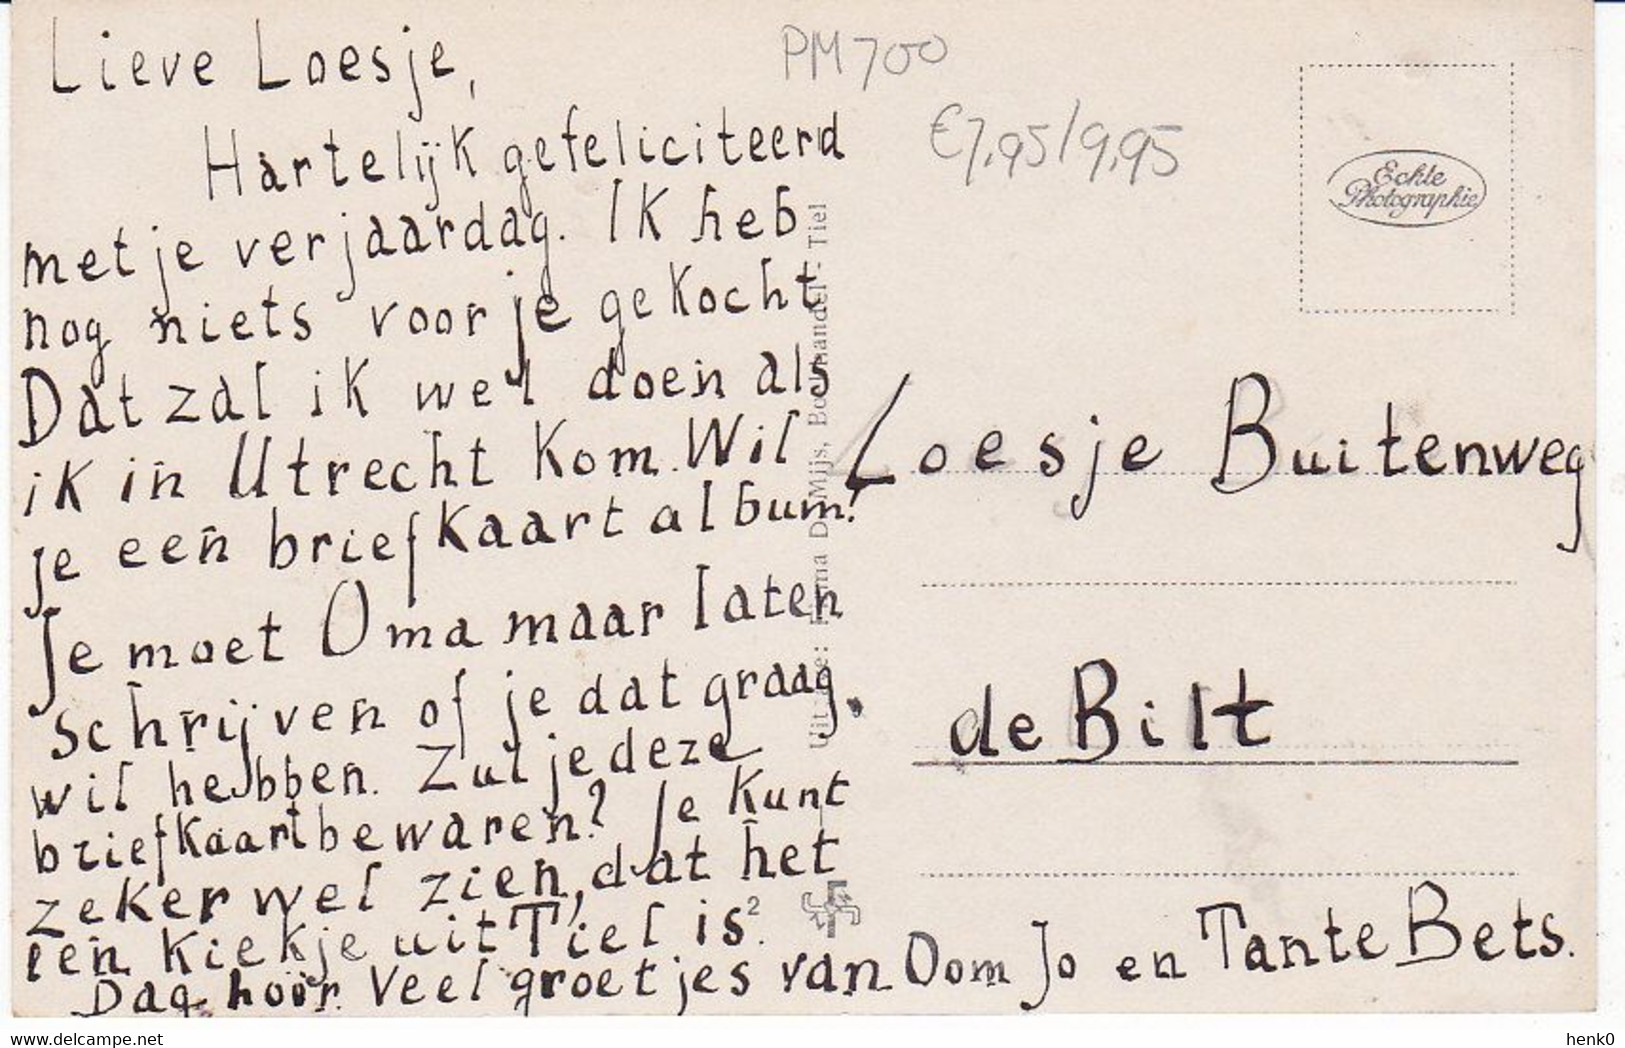 Lieve Loesje,
Hartelijk gefeliciteerd
met je verjaardag. Ik heb
nog niets voor je gekocht
Dat zal ik wel doen als
ik in Utrecht kom. Wil
je een briefkaart album?
Je moet Oma maar laten
schrijven of je dat graag
wil hebben. Zul je deze
briefkaart bewaren? Je kunt
zeker wel zien, dat het
een kiekje uit Tiel is.
Dag hoor. Veel groetjes van Oom Jo en Tante Bets.
PM 700
€7,95/9,95
Echte
Photographie
Loesje Buitenweg
de Bilt
Uitgave: Firma D. Mijs, Boekhandel - Tiel
2
henk0